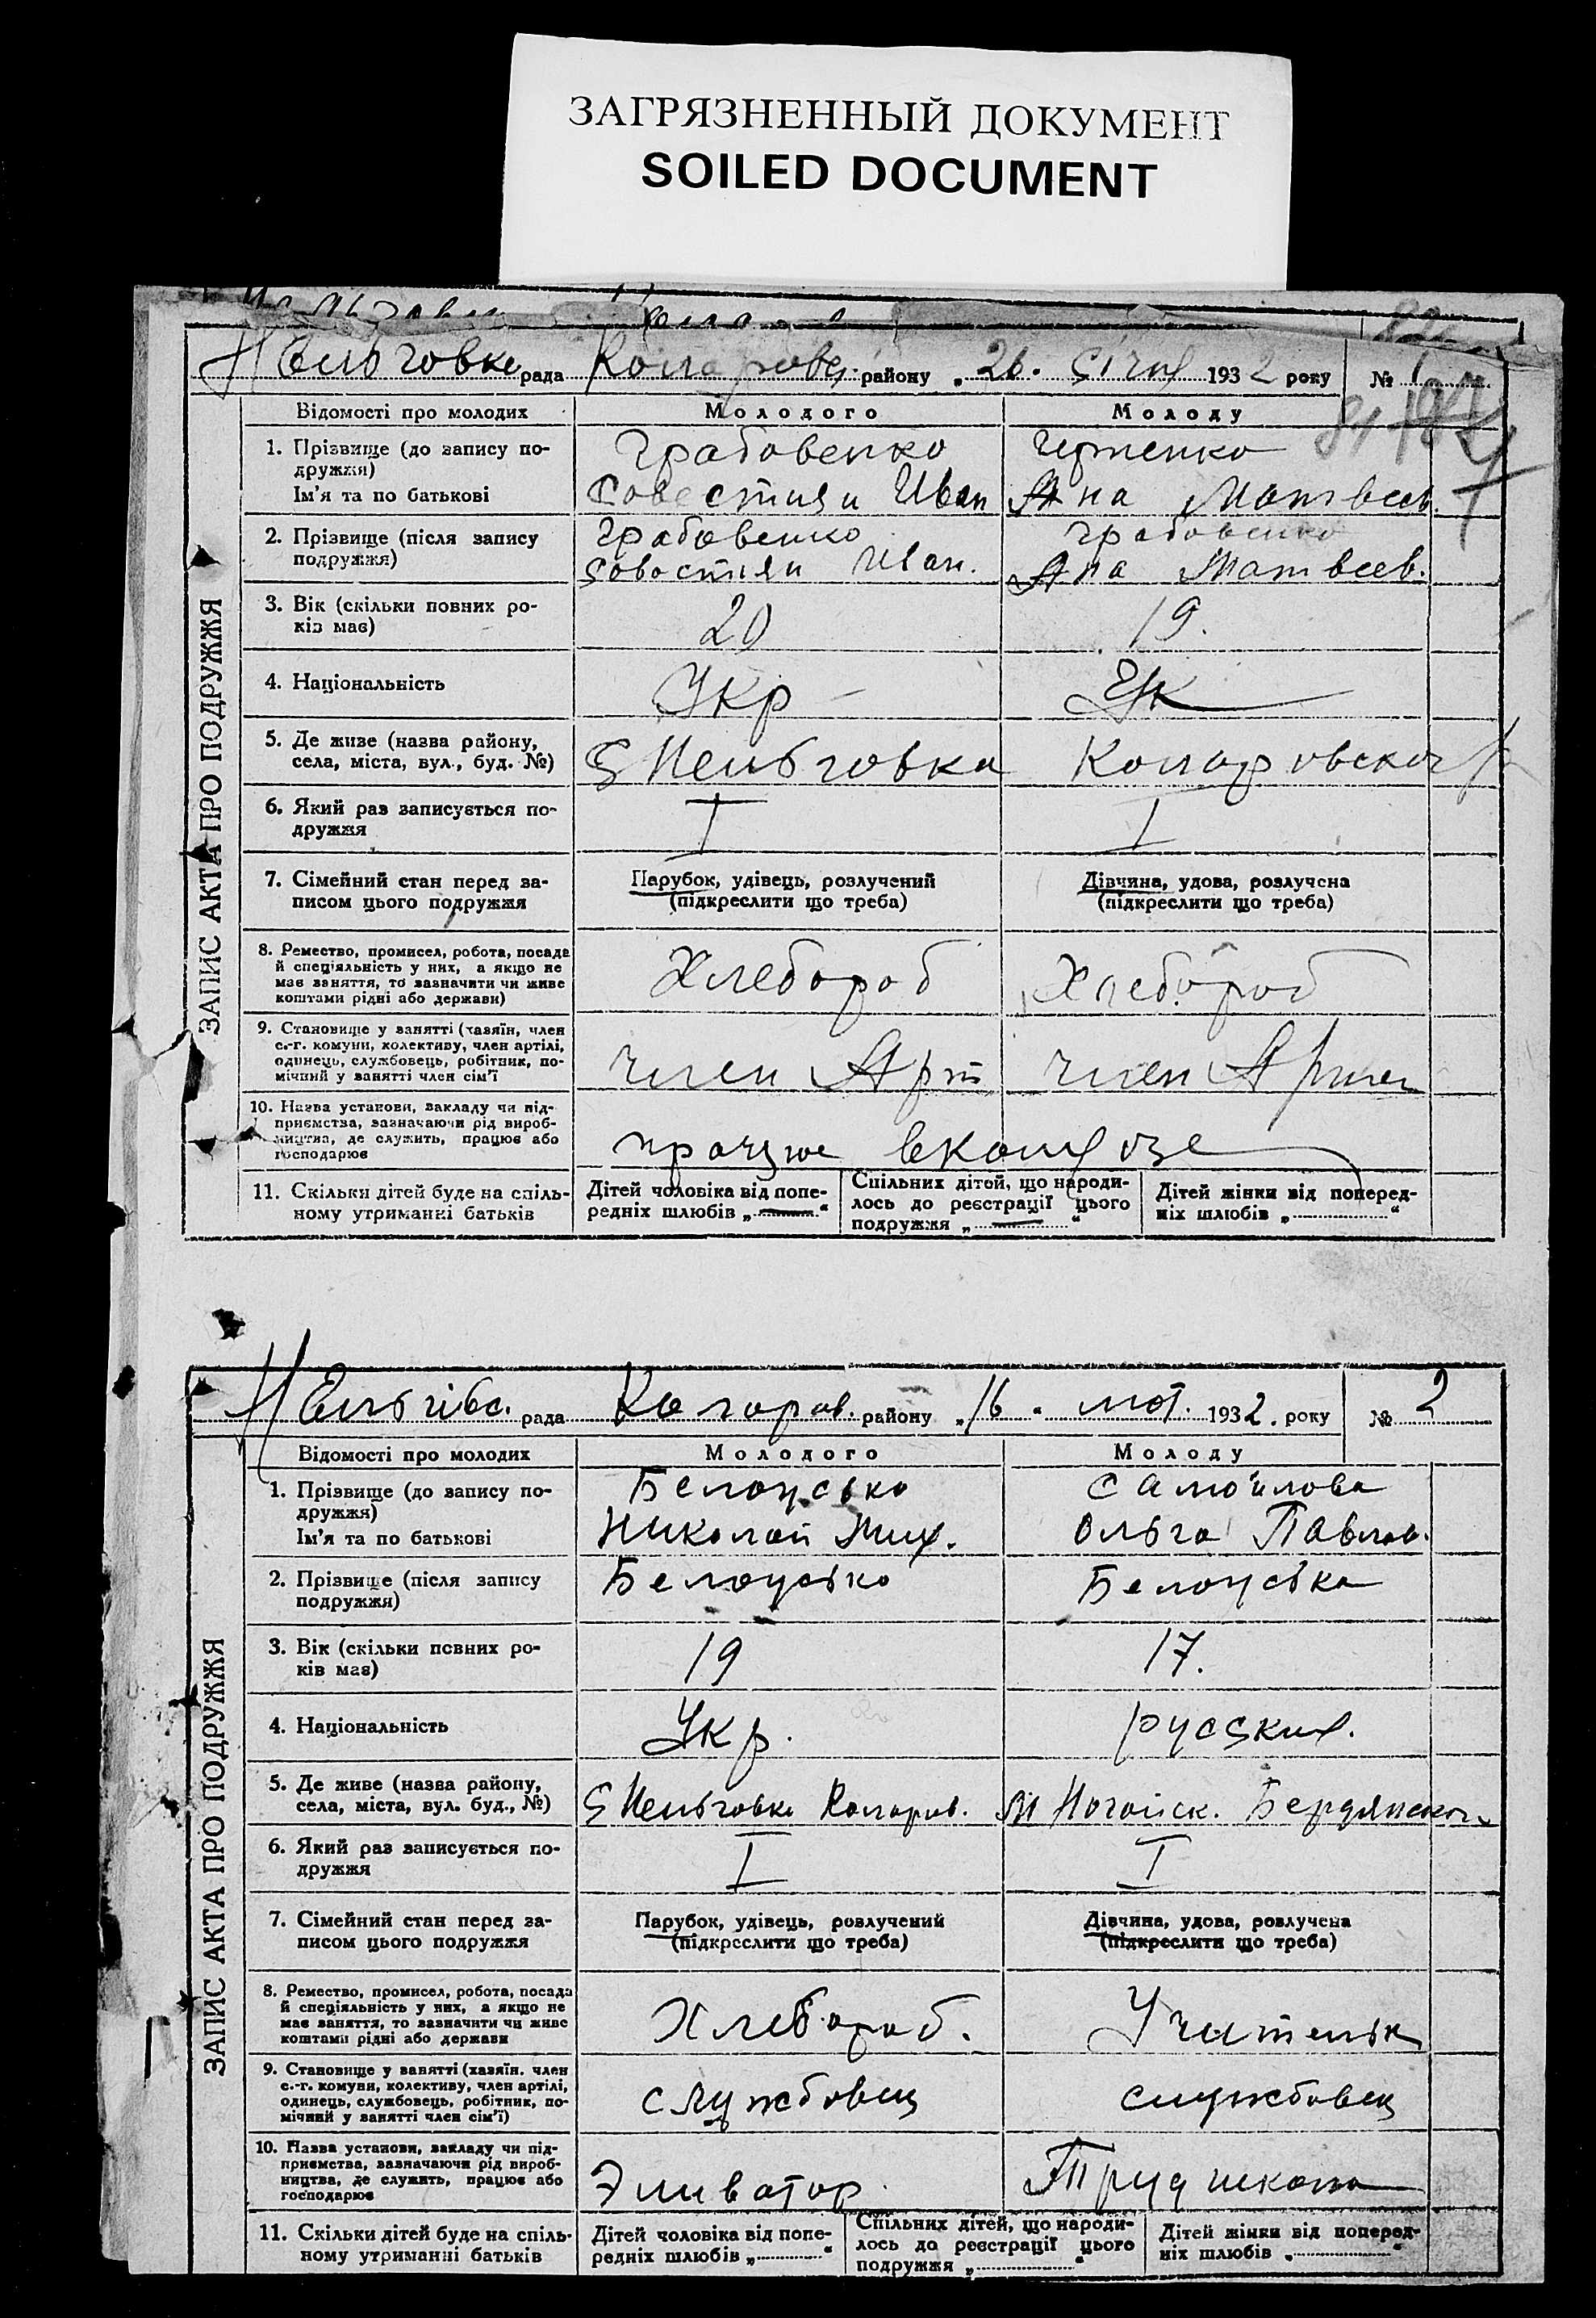 ЗАГРЯЗНЕННЫЙ ДОКУМЕНТ
SOILED DOCUMENT
Нельговка рада Коларовс. району „ 26. січня 1932 року № 1
ЗАПИС АКТА ПРО ПОДРУЖЖЯ
Відомості про молодих Молодого Молоду
1. Прізвище (до запису по-
дружжя)
Ім'я та по батькові
Грабовенко
Савестиян Иван
Ана Матвеев.
2. Прізвище (після запису
подружжя)
Грабовенко
Совостиян Иван.
Грабовенко
Ана Матвеев.
3. Вік (скільки повних ро-
ків має)
20 19.
4. Національність Укр
5. Де живе (назва району,
села, міста, вул., буд. №)
С Нельговка Коларовского р
6. Який раз записується по-
дружжя
I I
7. Сімейний стан перед за-
писом цього подружжя
Парубок, удівець, розлучений
(підкреслити що треба)
Дівчина, удова, розлучена
(підкреслити що треба)
8. Ремество, промисел, робота, посада
й спеціяльність у них, а якщо не
має заняття, то зазначити чи живе
коштами рідні або держави)
Хлебороб Хлебороб
9. Становище у занятті (хазяїн, член
с.-г. комуни, колективу, член артілі,
одинець, службовець, робітник, по-
мічний у занятті член сім'ї
член Арт член Артели
10. Назва установи, закладу чи під-
приємства, зазначаючи рід вироб-
ництва, де служить, працює або
господарює
працює вколхозе
11. Скільки дітей буде на спіль-
ному утриманні батьків
Дітей чоловіка від попе-
редніх шлюбів „ — “
Спільних дітей, що народи-
лось до реєстрації цього
подружжя „ — “
Дітей жінки від поперед-
ніх шлюбів „ “
Нельгівс. рада Коларов. району „ 16 “ лют. 1932. року № 2
ЗАПИС АКТА ПРО ПОДРУЖЖЯ
Відомості про молодих Молодого Молоду
1. Прізвище (до запису по-
дружжя)
Ім'я та по батькові
Белоуська
Николай Мих.
Самойлова
Ольга Павлов.
2. Прізвище (після запису
подружжя)
Белоуська Белоуська
3. Вік (скільки повних ро-
ків має)
19 17.
4. Національність Укр. русских.
5. Де живе (назва району,
села, міста, вул. буд., №)
С Нельговка Коларов. М Ногайск. Бердянского
6. Який раз записується по-
дружжя
I I
7. Сімейний стан перед за-
писом цього подружжя
Парубок, удівець, розлучений
(підкреслити що треба)
Дівчина, удова, розлучена
(підкреслити що треба)
8. Ремество, промисел, робота, посада
й спеціяльність у них, а якщо не
має заняття, то зазначити чи живе
коштами рідні або держави
Хлебороб. Учительк
9. Становище у занятті (хазяїн. член
с.-г. комуни, колективу, член артілі,
одинець, службовець, робітник, по-
мічний у занятті член сім'ї)
службовец службовец
10. Назва установи, закладу чи під-
приємства, зазначаючи рід вироб-
ництва, де служить, працює або
господарює
Эливатор Труд школа
11. Скільки дітей буде на спіль-
ному утриманні батьків
Дітей чоловіка від попе-
редніх шлюбів „ “
Спільних дітей, що народи-
лось до реєстрації цього
подружжя „ “
Дітей жінки від поперед-
ніх шлюбів „ “